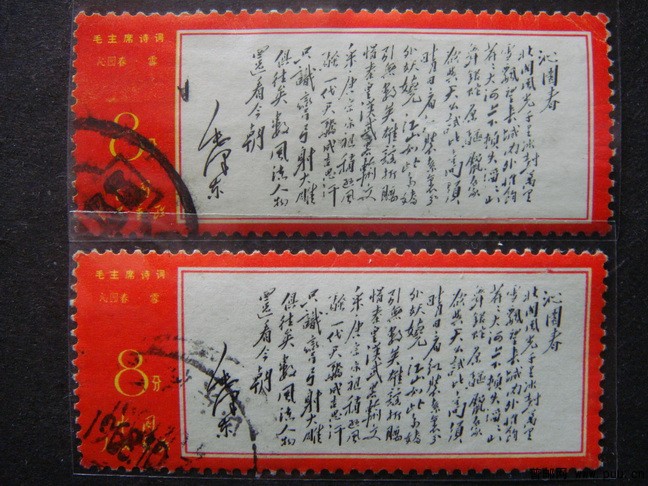 毛主席诗词
沁园春 雪
8
沁園春
北国風光千里冰封万里
雪飘望长城内外惟馀
莽莽大河上下頓失滔滔山
舞银蛇原驱臘象
欲与天公試比高須
晴日看红装素裹分
外妖娆江山如此多娇
引無数英雄競折腰
惜秦皇漢武略輸文
采唐宗宋祖稍逊風
骚一代天驕成吉思汗
只識弯弓射大雕
俱往矣数風流人物
還看今朝
毛泽东
毛主席诗词
沁园春 雪
8分
沁園春
北国風光千里冰封万里
雪飘望长城内外惟馀
莽莽大河上下頓失滔滔山
舞银蛇原驱臘象
欲与天公試比高須
晴日看红装素裹分
外妖娆江山如此多娇
引無数英雄競折腰
惜秦皇漢武略輸文
采唐宗宋祖稍逊風
骚一代天驕成吉思汗
只識弯弓射大雕
俱往矣数風流人物
還看今朝
毛泽东